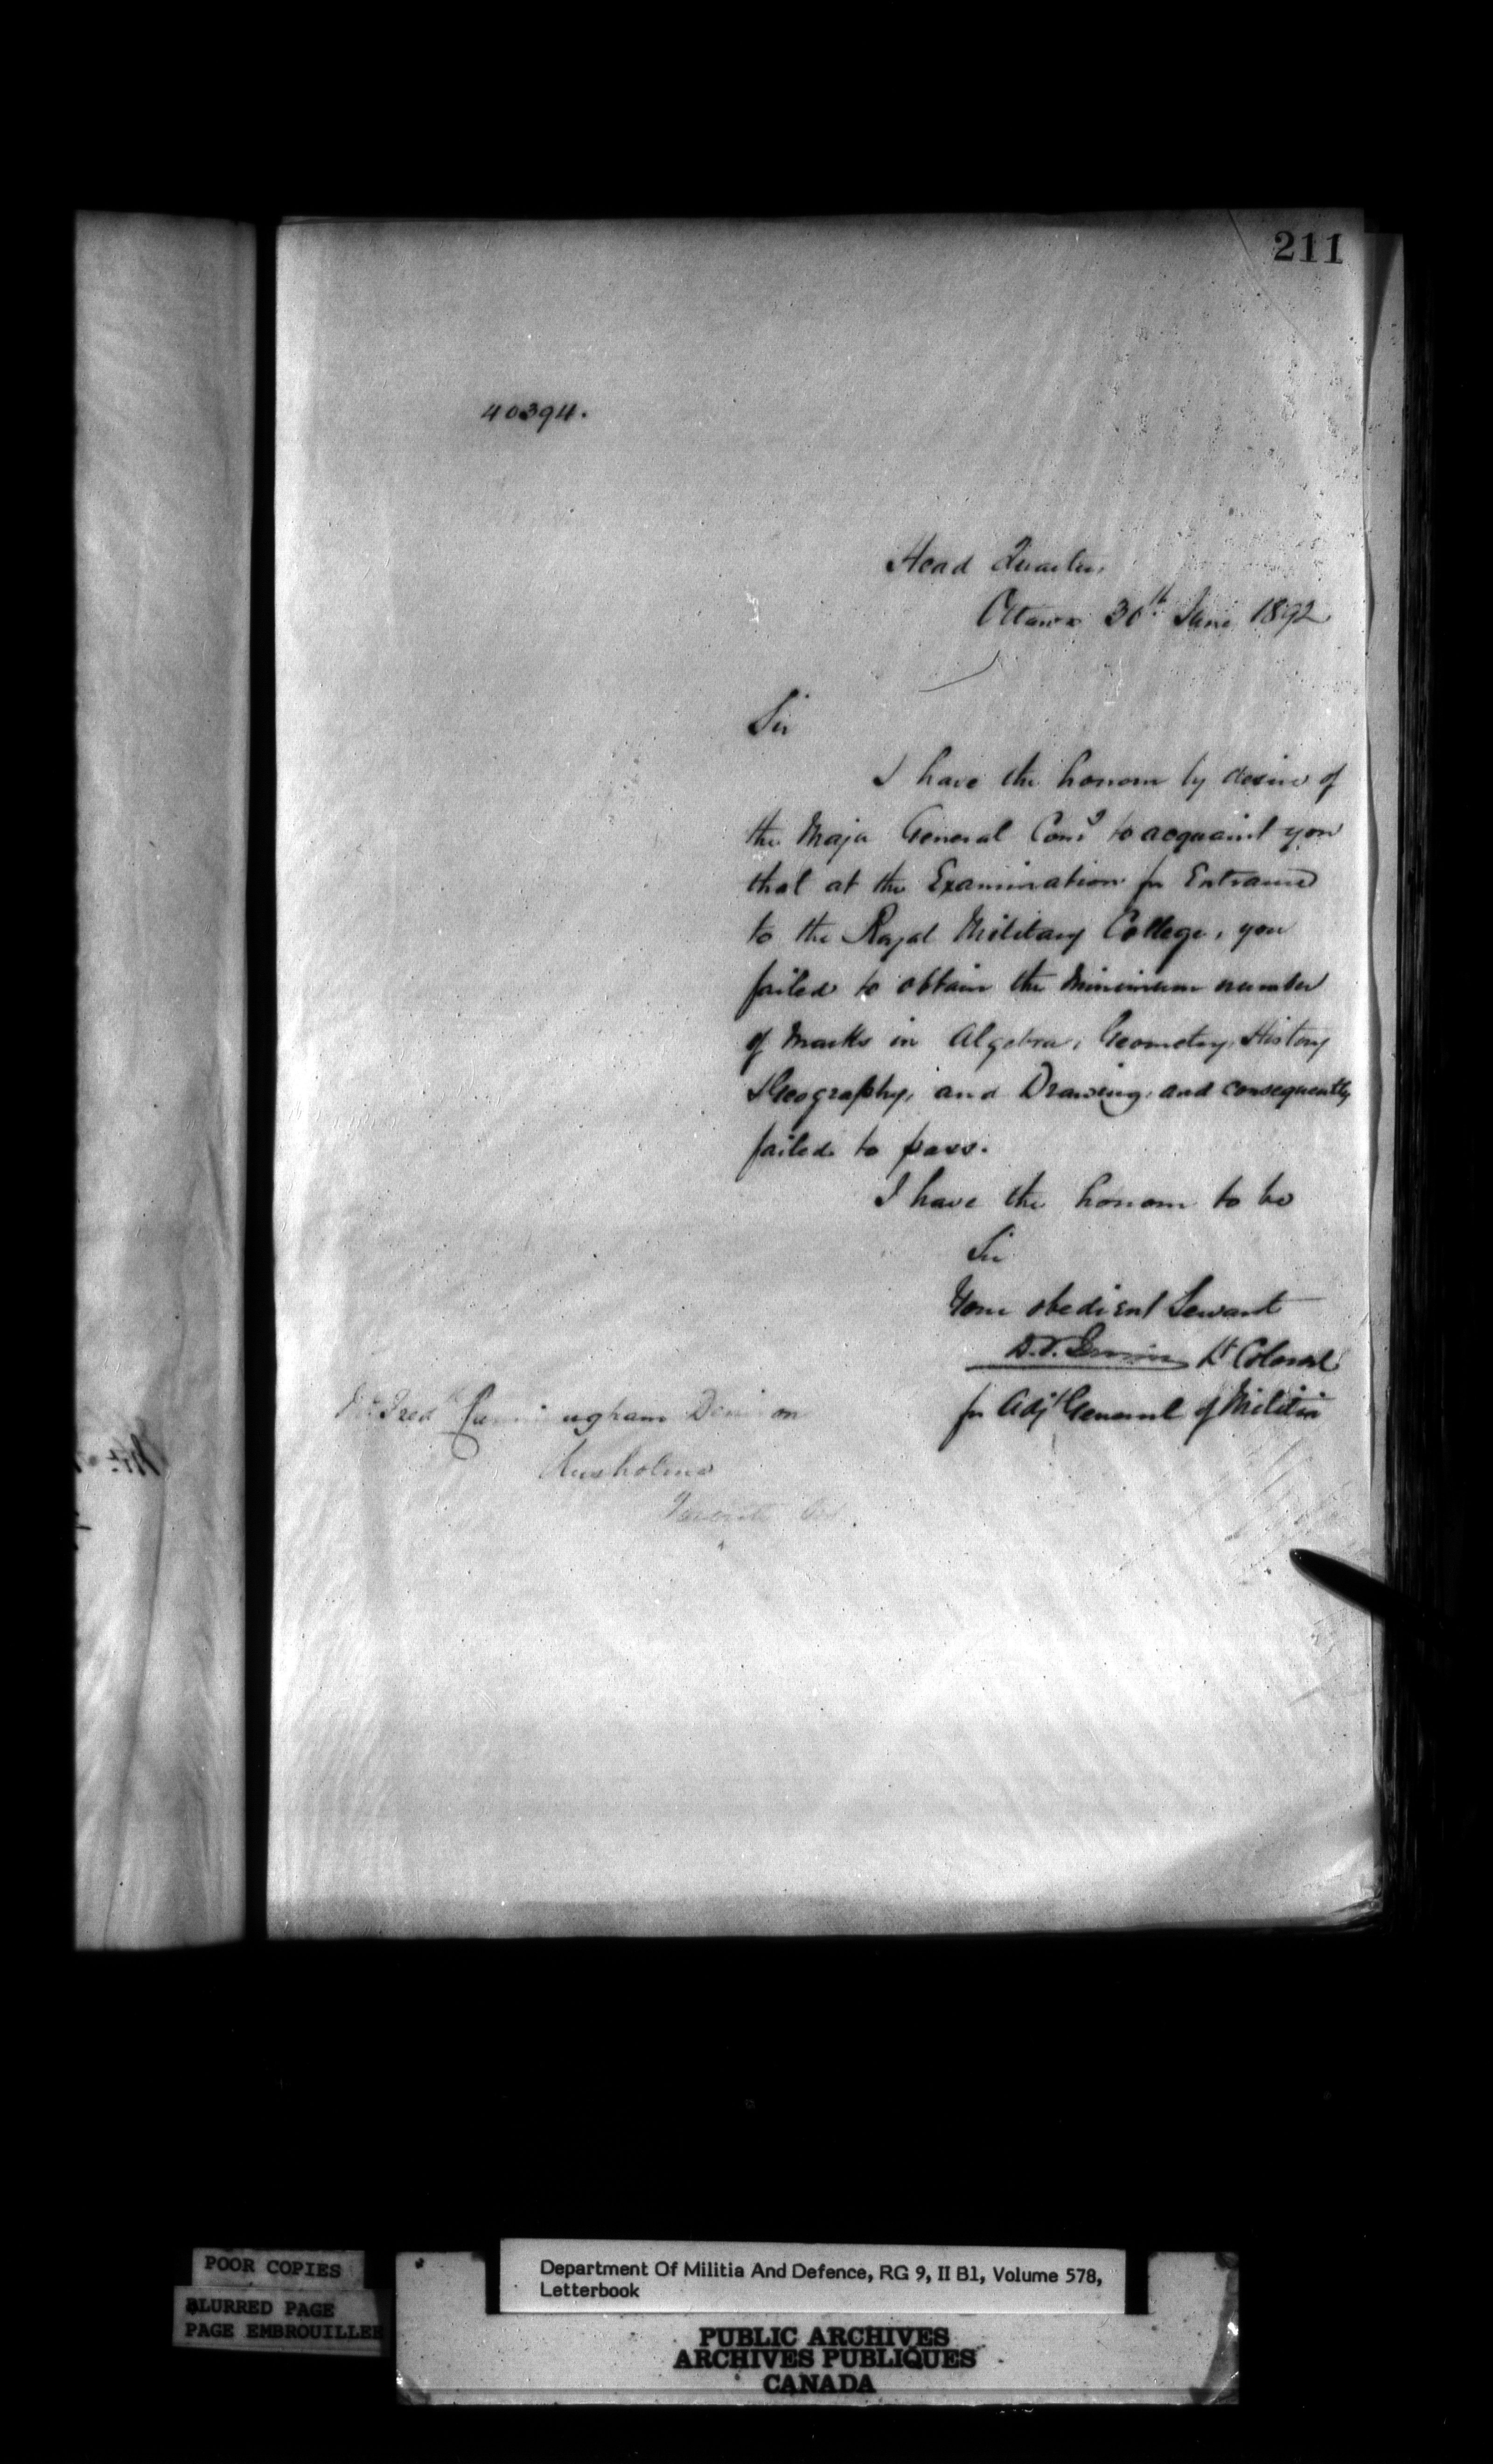 211
40394.
Head Quarters
Ottawa 30th June 1892
Sir
I have the honour by desire of
the Major General Comg to acquaint you
that at the Examination for Entrance
to the Royal Military College, you
failed to obtain the minimum number
of marks in Algebra, Geometry, History
& Geography, and Drawing, and consequently
failed to pass.
I have the honour to be
Sir
Your obedient Servant
Lt Colonel
for Adjt General of Militia
Mr Fredk Cunningham Denison
Rusholme
Toronto Ont.
POOR COPIES
BLURRED PAGE
PAGE EMBROUILLEE
Department Of Militia And Defence, RG 9, II B1, Volume 578,
Letterbook
PUBLIC ARCHIVES
ARCHIVES PUBLIQUES
CANADA